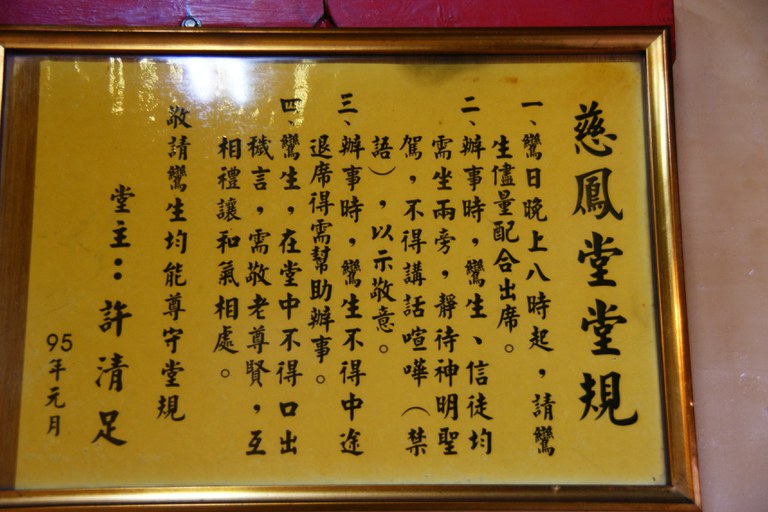 慈鳳堂堂規
一、鸞日晚上八時起，請鸞
生儘量配合出席。
二、辦事時，鸞生、信徒均
需坐兩旁，靜待神明聖
駕，不得講話喧嘩（禁
語），以示敬意。
三、辦事時，鸞生不得中途
退席得需幫助辦事。
四、鸞生，在堂中不得口出
穢言，需敬老尊賢，互
相禮讓和氣相處。
敬請鸞生均能尊守堂規
堂主：許清足
95年元月